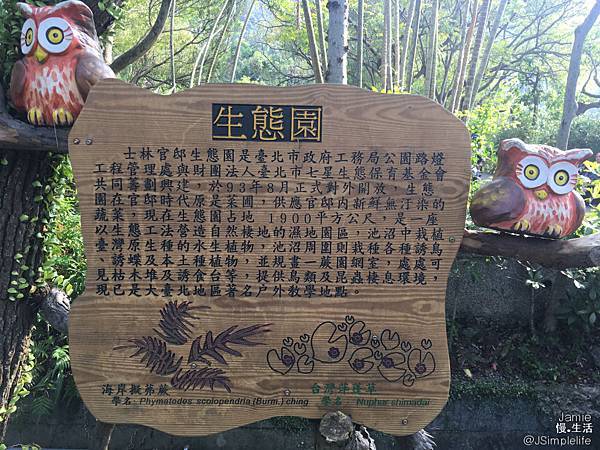 生態園
士林官邸生態園是臺北市政府工務局公園路燈
工程管理處與財團法人臺北市七星生態保育基金會
共同籌劃興建，於93年8月正式對外開放，生態
園在官邸時代原是菜圃，供應官邸內新鮮無汙染的
蔬菜，現在生態園占地 1900平方公尺，是一座
以生態工法營造自然棲地的濕地園區，池沼中栽植
臺灣原生種的水生植物，池沼周圍則栽種各種誘鳥
、誘蝶及本土種植物，並規畫一蕨園網室，處處可
見枯木堆及誘食台等，提供鳥類及昆蟲棲息環境，
現已是大臺北地區著名戶外教學地點。
海岸擬茀蕨
學名：Phymatodes scolopendria (Burm.) ching
台灣萍蓬草
學名：Nuphar shimadai
Jamie
慢。生活
@JSimplelife